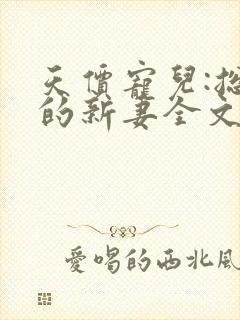 天價寵兒:總
的新妻全文
愛唱的西北風